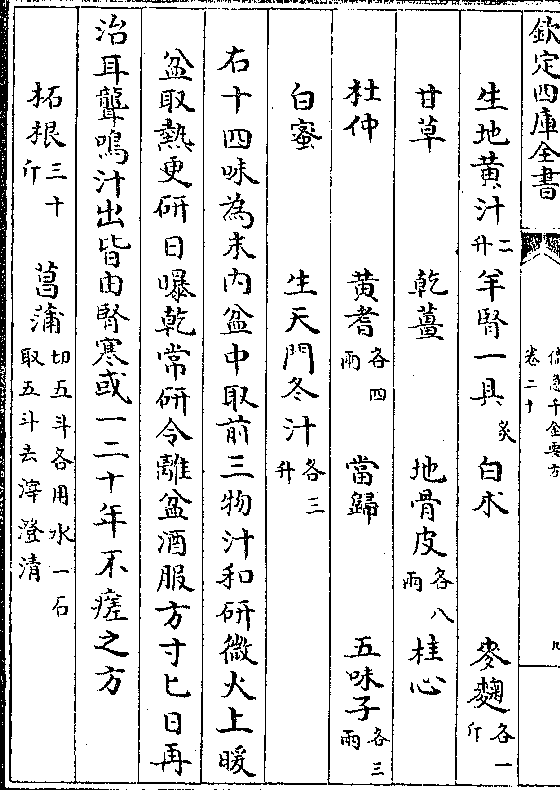 欽定四庫全書
卷二十
生地黃汁二升 羊腎一具炙 白术 麥麴各一斤
甘草 乾薑 地骨皮各八兩 桂心
杜仲 黃耆各四兩 當歸 五味子各三兩
白蜜 生天門冬汁各三升
右十四味為末內盆中取前三物汁和研微火上暖
盆取熱更研日曝乾常研令離盆酒服方寸匕日再
治耳聾鳴汁出皆由腎寒或一二十年不瘥之方
柘根三十斤 菖蒲切五斗各用水一石取五斗去滓澄清